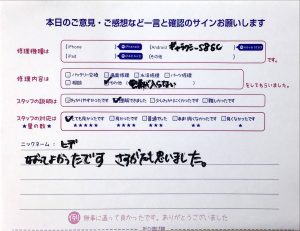 本日のご意見・ご感想など一言と確認のサインお願いします
修理機種は
iPhone
Android
iPad
その他
です。
修理内容は
バッテリー交換 画面修理 水没修理 パーツ修理
相談 その他
をしてもらいました。
スタッフの説明は
わかりやすかったです 理解できました 少しわかりにくかったです 難しかったです
スタッフの対応は
★星の数★
とても良かったです 良かったです 普通でした 良くなかったです
★★★★★ ★★★★ ★★★ ★★ ★
ニックネーム：ヒデ
なおってよかったです さすがだと思いました。
例 無事に直って良かったです。ありがとうございました